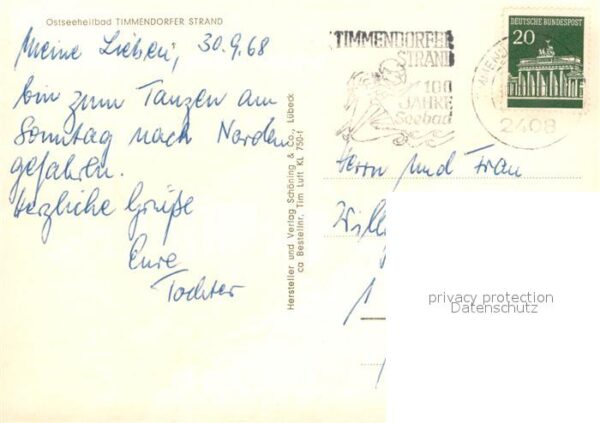 Ostseeheilbad TIMMENDORFER STRAND
Meine Lieben, 30.9.68
bin zum Tanzen am
Sonntag nach Norden
gefahren.
Herzliche Grüße
Eure
Tochter
Hersteller und Verlag Schöning & Co., Lübeck
ca Bestellnr. Tim Luft KL 750-1
TIMMENDORFER
STRAND
100
JAHRE
Seebad
2408
DEUTSCHE BUNDESPOST
20
Herrn und Frau
privacy protection
Datenschutz